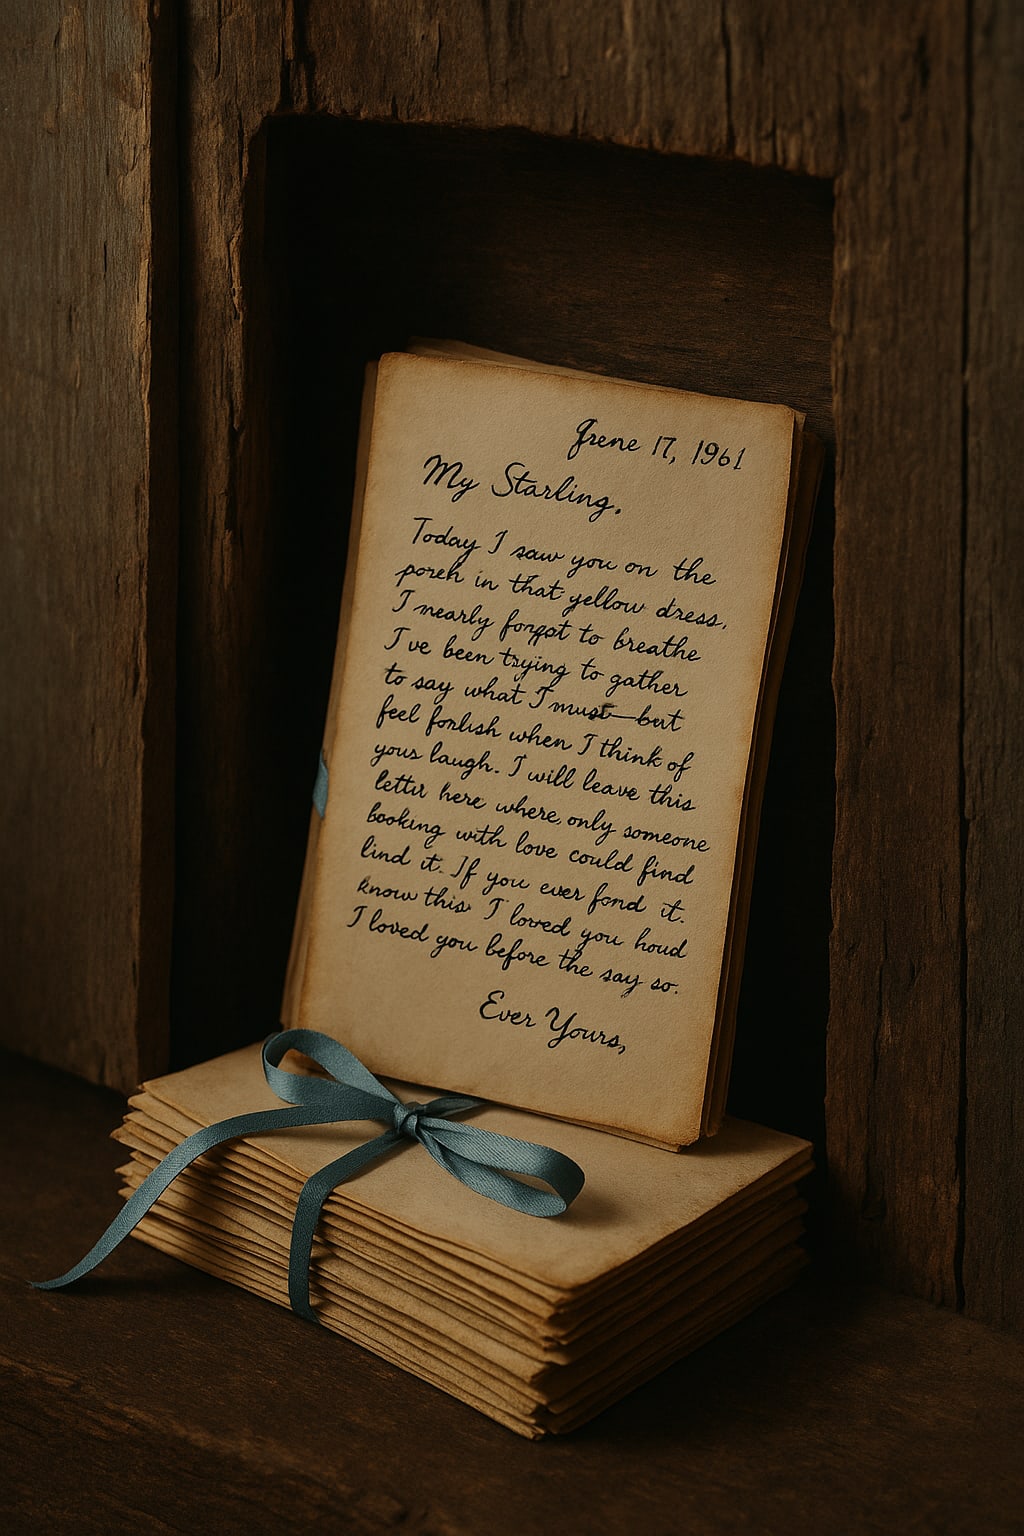 Grene 17, 1961
My Starling,
Today I saw you on the
porch in that yellow dress.
I nearly forgot to breathe
I've been trying to gather
to say what I must—but
feel forlish when I think of
your laugh. I will leave this
letter here where only someone
booking with love could find
lind it. If you ever fond it.
know this I loved you houd
I loved you before the say so.
Ever Yours,